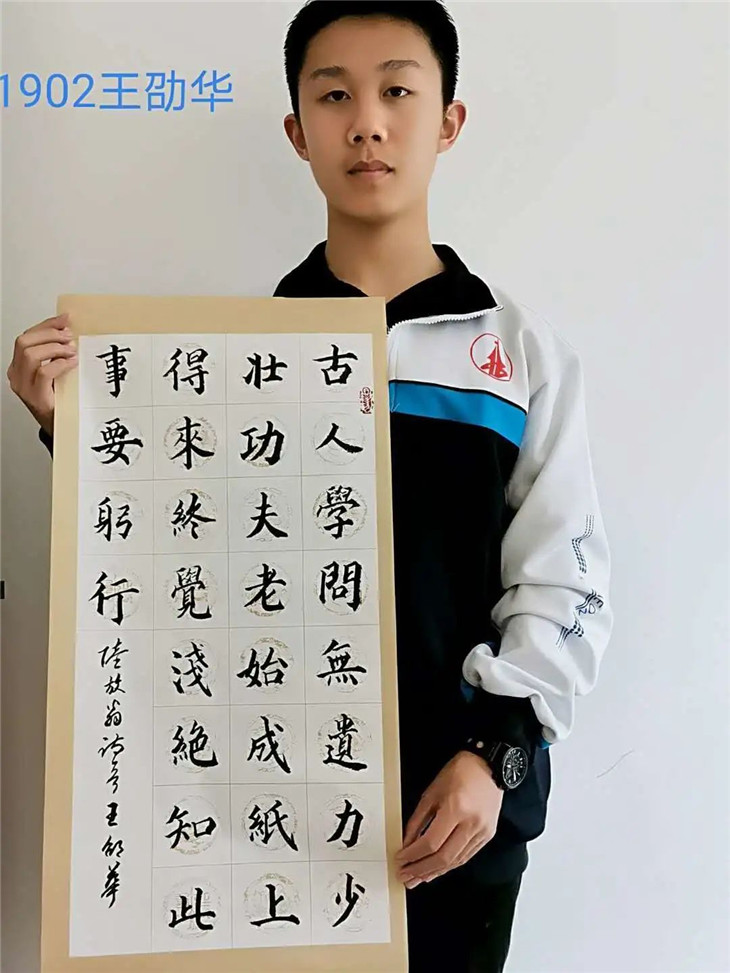 1902王劭华
古人學問無遺力少
壯功夫老始成紙上
得來終覺淺絶知此
事要躬行
陸放翁詩意王劭華